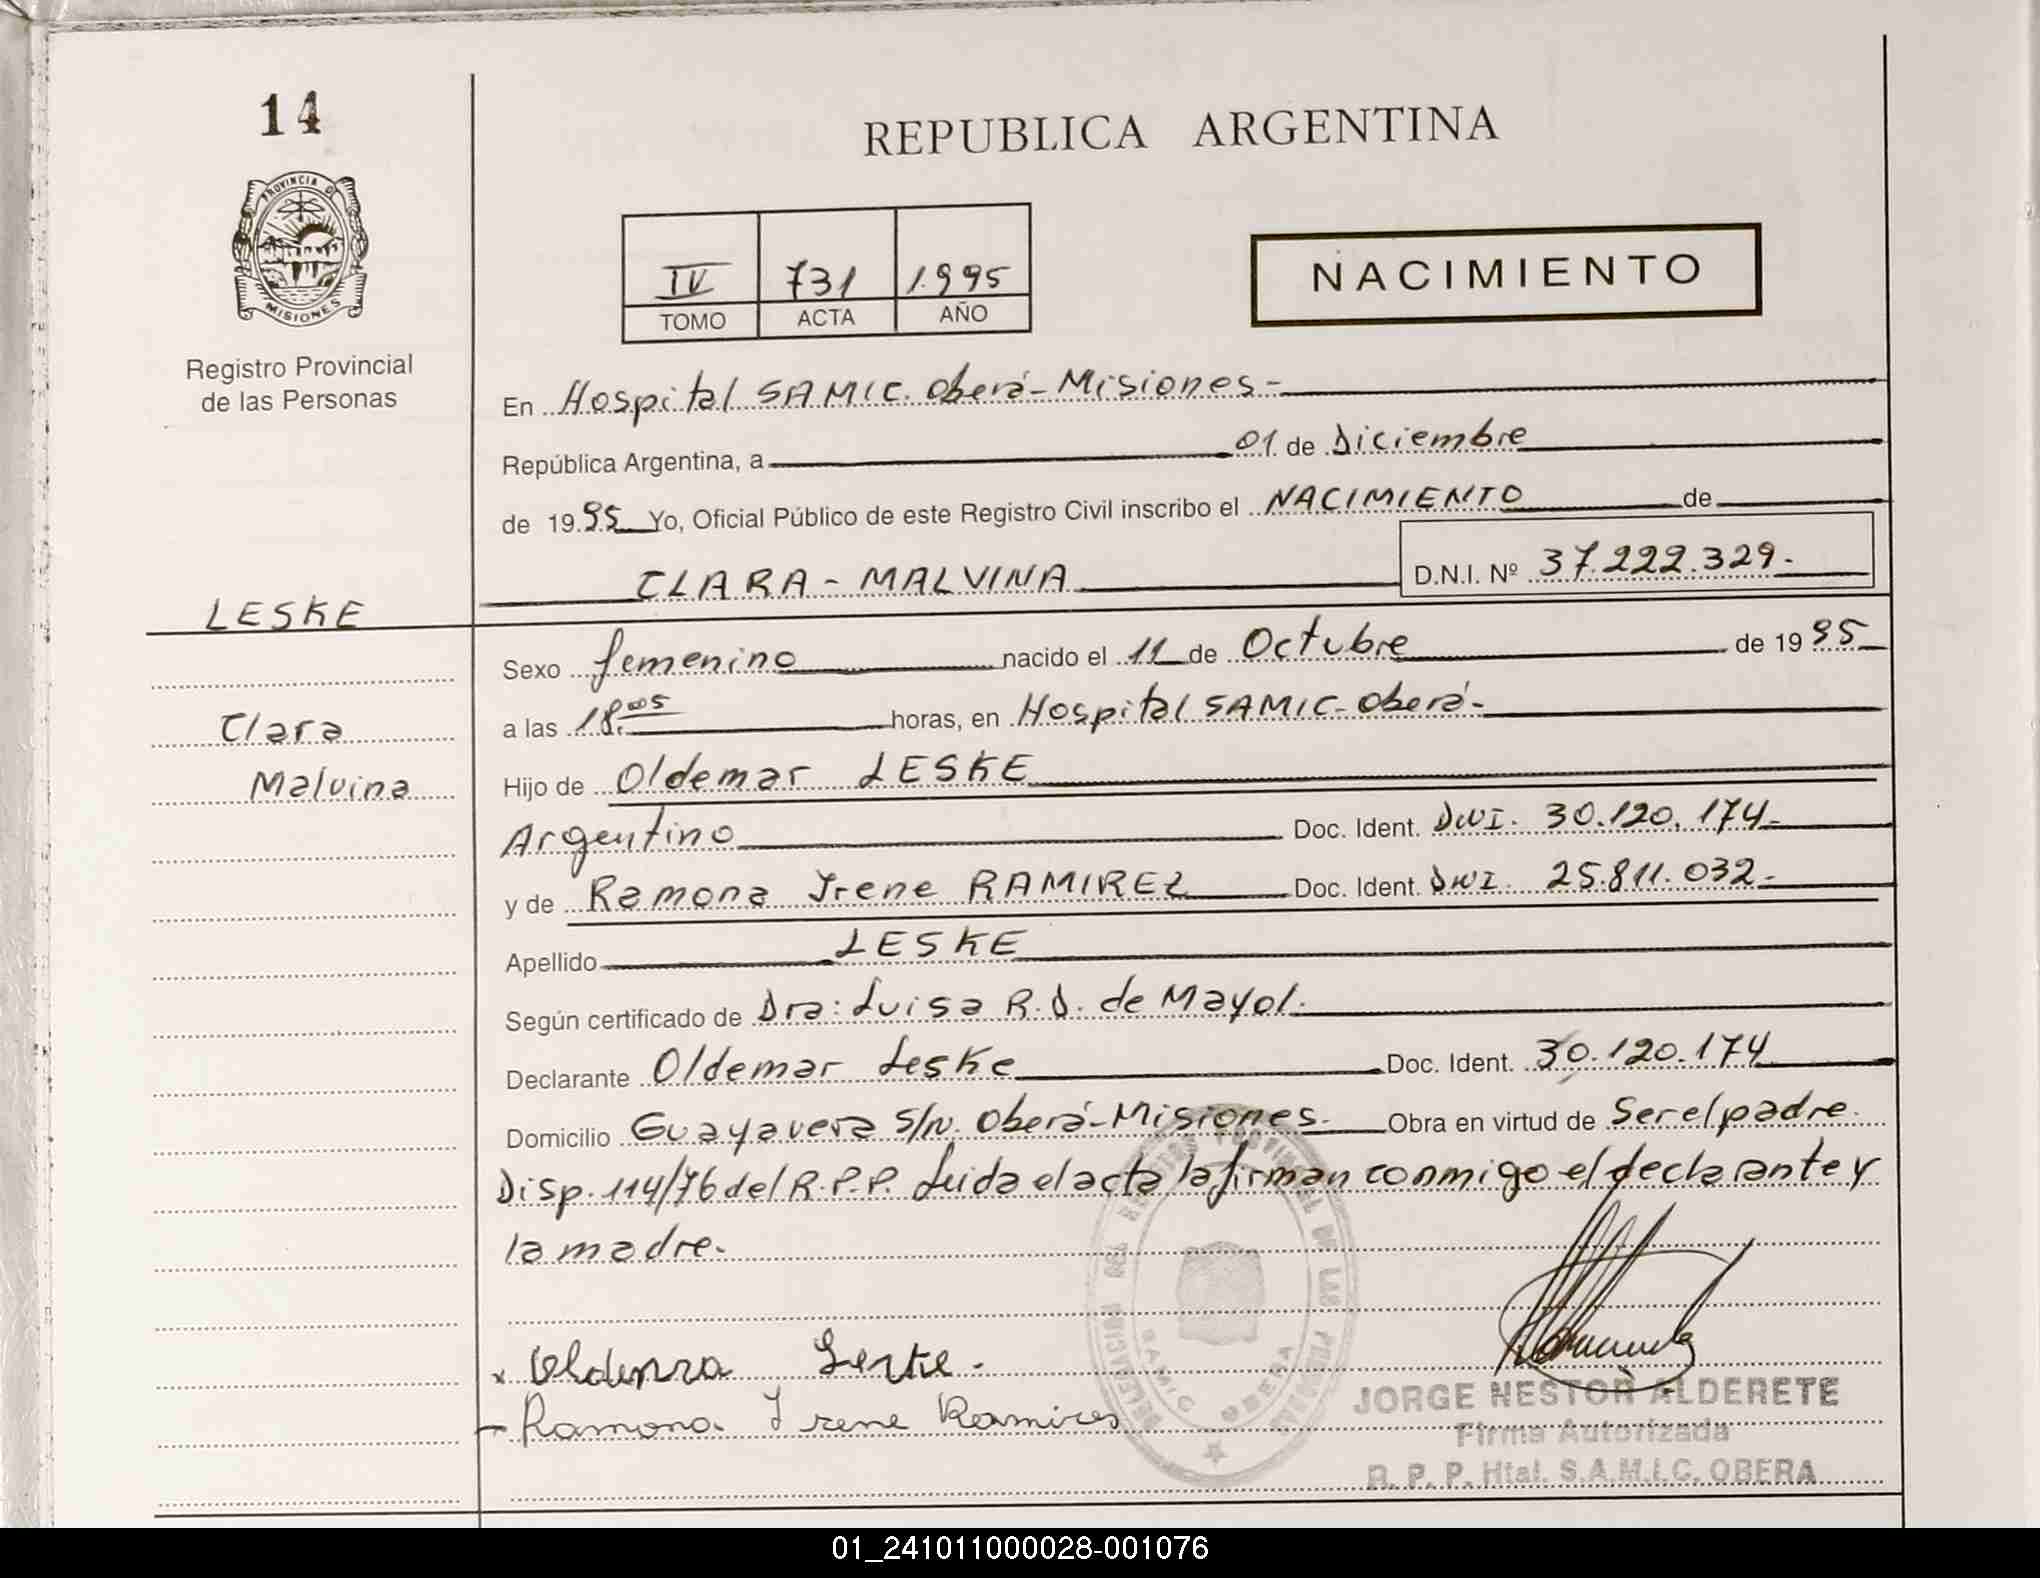 14
REPUBLICA ARGENTINA
PROVINCIA DE
MISIONES
Registro Provincial
de las Personas
IV 731 1.995
TOMO ACTA AÑO
NACIMIENTO
En Hospital SAMIC. Oberá - Misiones -
República Argentina, a 01 de Diciembre
de 1995 Yo, Oficial Público de este Registro Civil inscribo el NACIMIENTO de
CLARA - MALVINA D.N.I. Nº 37.222.329.-
LESKE
Clara
Malvina
Sexo femenino nacido el 11 de Octubre de 1995
a las 18.005 horas, en Hospital SAMIC - Oberá -
Hijo de Oldemar LESKE
Argentino Doc. Ident. DNI. 30.120.174 -
y de Ramona Irene RAMIREZ Doc. Ident. DNI. 25.811.032 -
Apellido LESKE
Según certificado de Dra: Luisa R. D. de Mayol.
Declarante Oldemar Leske Doc. Ident. 30.120.174
Domicilio Guayavera S/N. Oberá - Misiones. - Obra en virtud de Ser el padre.
Disp. 114/76 del R.P.P. Leida el acta la firman conmigo el declarante y
la madre.-
DELEGACION DEL REGISTRO PROVINCIAL DE LAS PERSONAS
SAMIC OBERA
Leske -
Ramona Irene Ramires
JORGE NESTOR ALDERETE
Firma Autorizada
R. P. P. Htal. S.A.M.I.C. OBERA
01_241011000028-001076